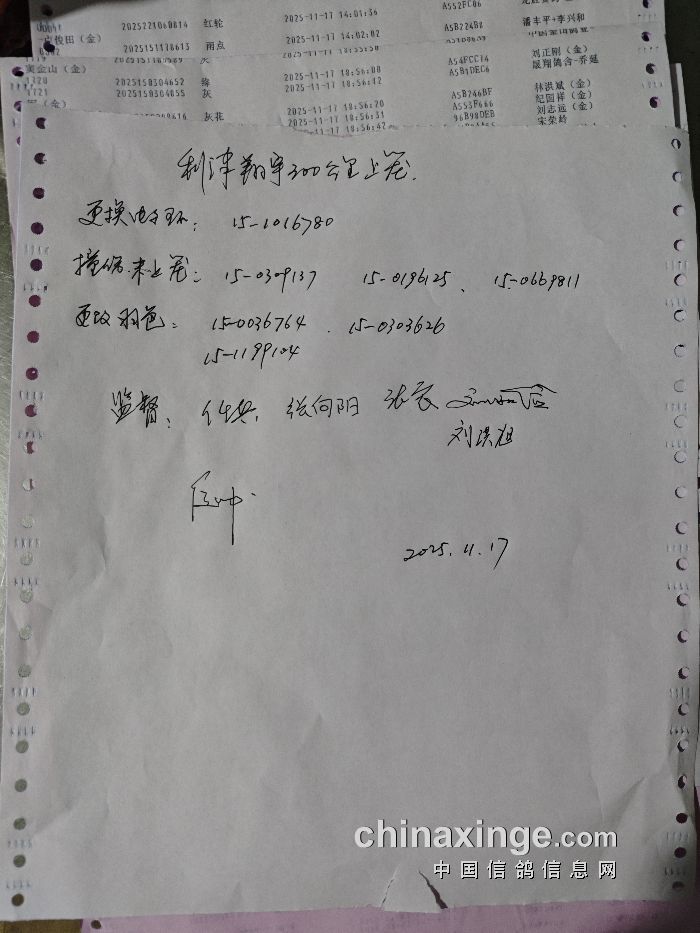 2025221060814 红轮 2025-11-17 14:01:36 A552FC06
卢俊田（金） 2025151178613 雨点 2025-11-17 14:02:02 A5B224B8 潘丰平+李兴和
灰 A54FCC14 刘正刚（金）
黄金山（金） 2025150304652 绛 2025-11-17 18:56:08 A5B1DEC6 晟翔鸽舍-乔延
1721 2025150304655 灰 A5B246BF 林洪斌（金）
2025-11-17 18:56:20 A553F666 纪国祥（金）
灰花 2025-11-17 18:56:31 96B98DEB 刘志远（金）
2025-11-17 18:56:42 宋荣岭
利津翔宇300公里上笼.
更换电子环: 15-1016780
撞伤未上笼: 15-0309137 15-0196125、 15-0669811
更改羽色: 15-0036764 、15-0303626
15-1199104
监督: 张向阳
刘洪旭
2025.11.17
chinaxinge.com
中国信鸽信息网